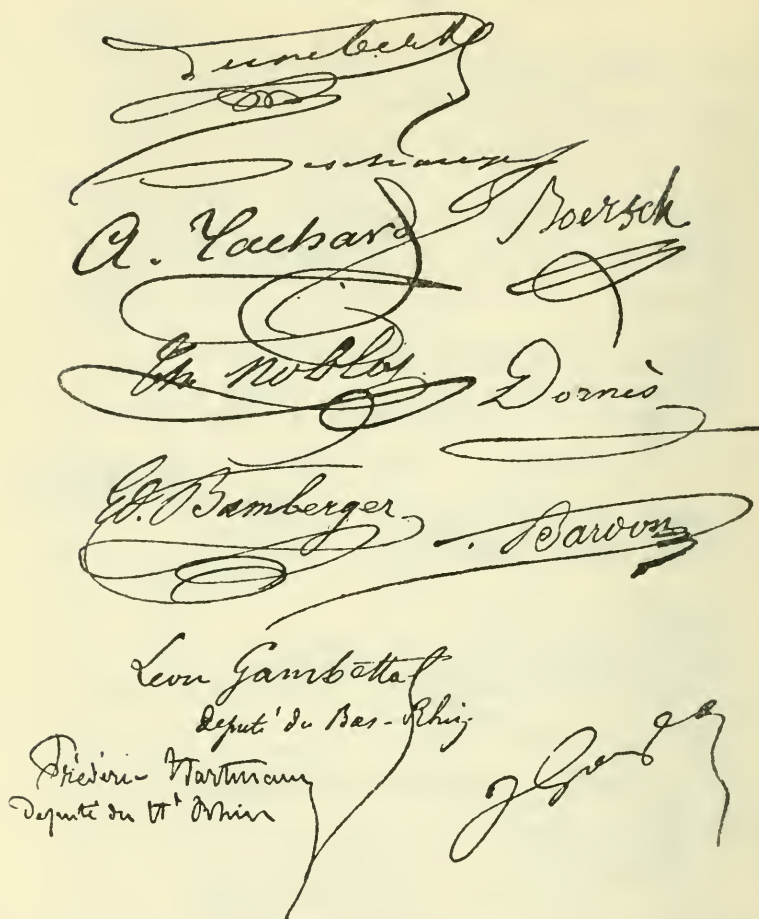 A. Tachard
Boersch
Ch. Noblot
Dornès
Ed. Bamberger
Bardon
Léon Gambetta
député du Bas-Rhin
Frédéric Hartmann
Député du Ht Rhin